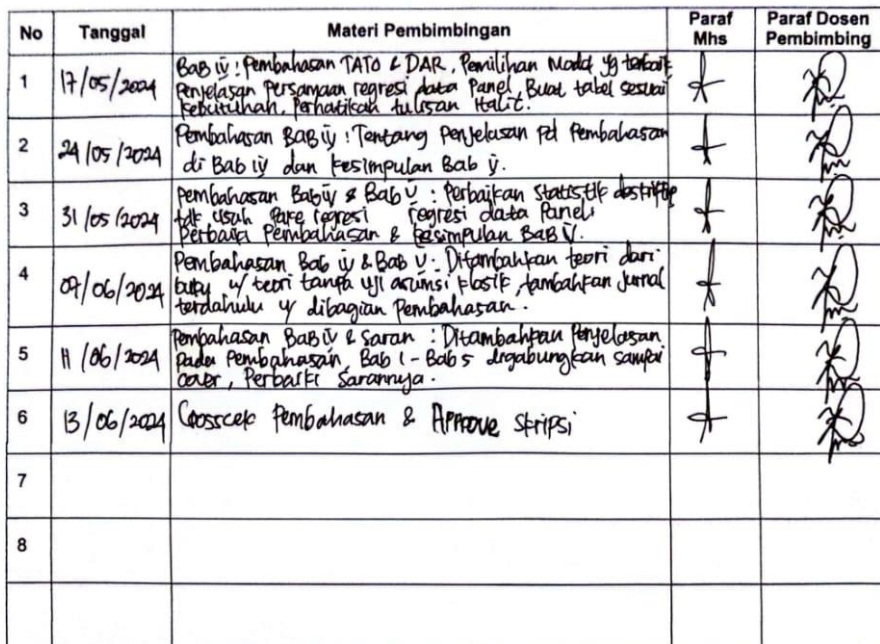 No Tanggal Materi Pembimbingan Paraf Mhs Paraf Dosen Pembimbing
1 17/05/2024 Bab iv : Pembahasan TATO & DAR, Pemilihan Model yg terbaik
Penjelasan Persamaan regresi data Panel, Buat tabel sesuai
kebutuhan, Perhatikan tulisan Italic.
2 24/05/2024 Pembahasan BAB iv : Tentang Penjelasan Pd Pembahasan
di Bab iv dan kesimpulan Bab v.
3 31/05/2024 Pembahasan Bab iv & Bab v : Perbaikan Statistik deskriptif
tdk usah Pake regresi regresi data Panel,
Perbaiki Pembahasan & kesimpulan BAB V.
4 07/06/2024 Pembahasan Bab iv & Bab v : Ditambahkan teori dari
buku u/ teori tanpa uji asumsi klasik, tambahkan Jurnal
terdahulu u/ dibagian Pembahasan.
5 11/06/2024 Pembahasan BAB iv & Saran : Ditambahkan Penjelasan
Pada Pembahasan, Bab 1 - Bab 5 digabungkan sampai
cover, Perbaiki Sarannya.
6 13/06/2024 Crosscek Pembahasan & APProve Skripsi
7
8